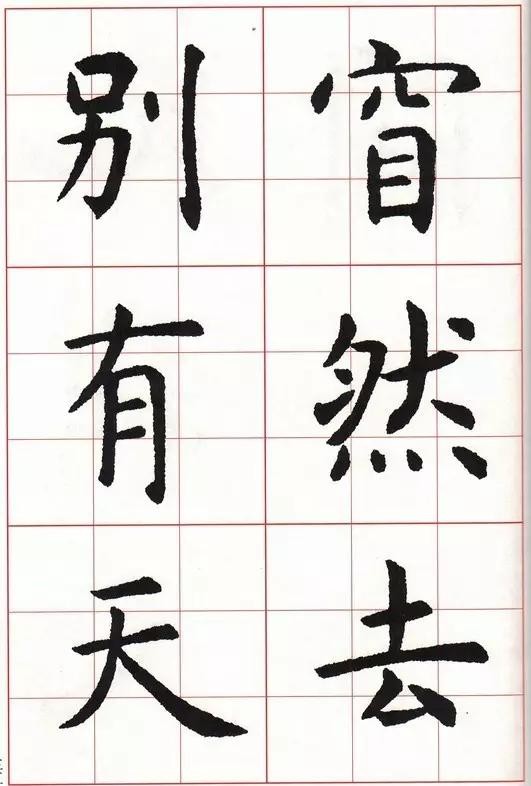 窅然去
别有天